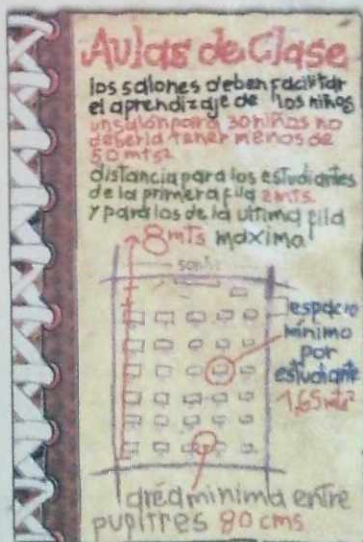 Aulas de Clase
los salones deben facilitar
el aprendizaje de los niños
un salón para 30 niños no
debería tener menos de
50 mts²
distancia para los estudiantes
de la primera fila 2 mts.
y para los de la ultima fila
8 mts maximo
50 mts²
espacio
mínimo
por
estudiante
1,65 mts²
área minima entre
pupitres 80 cms